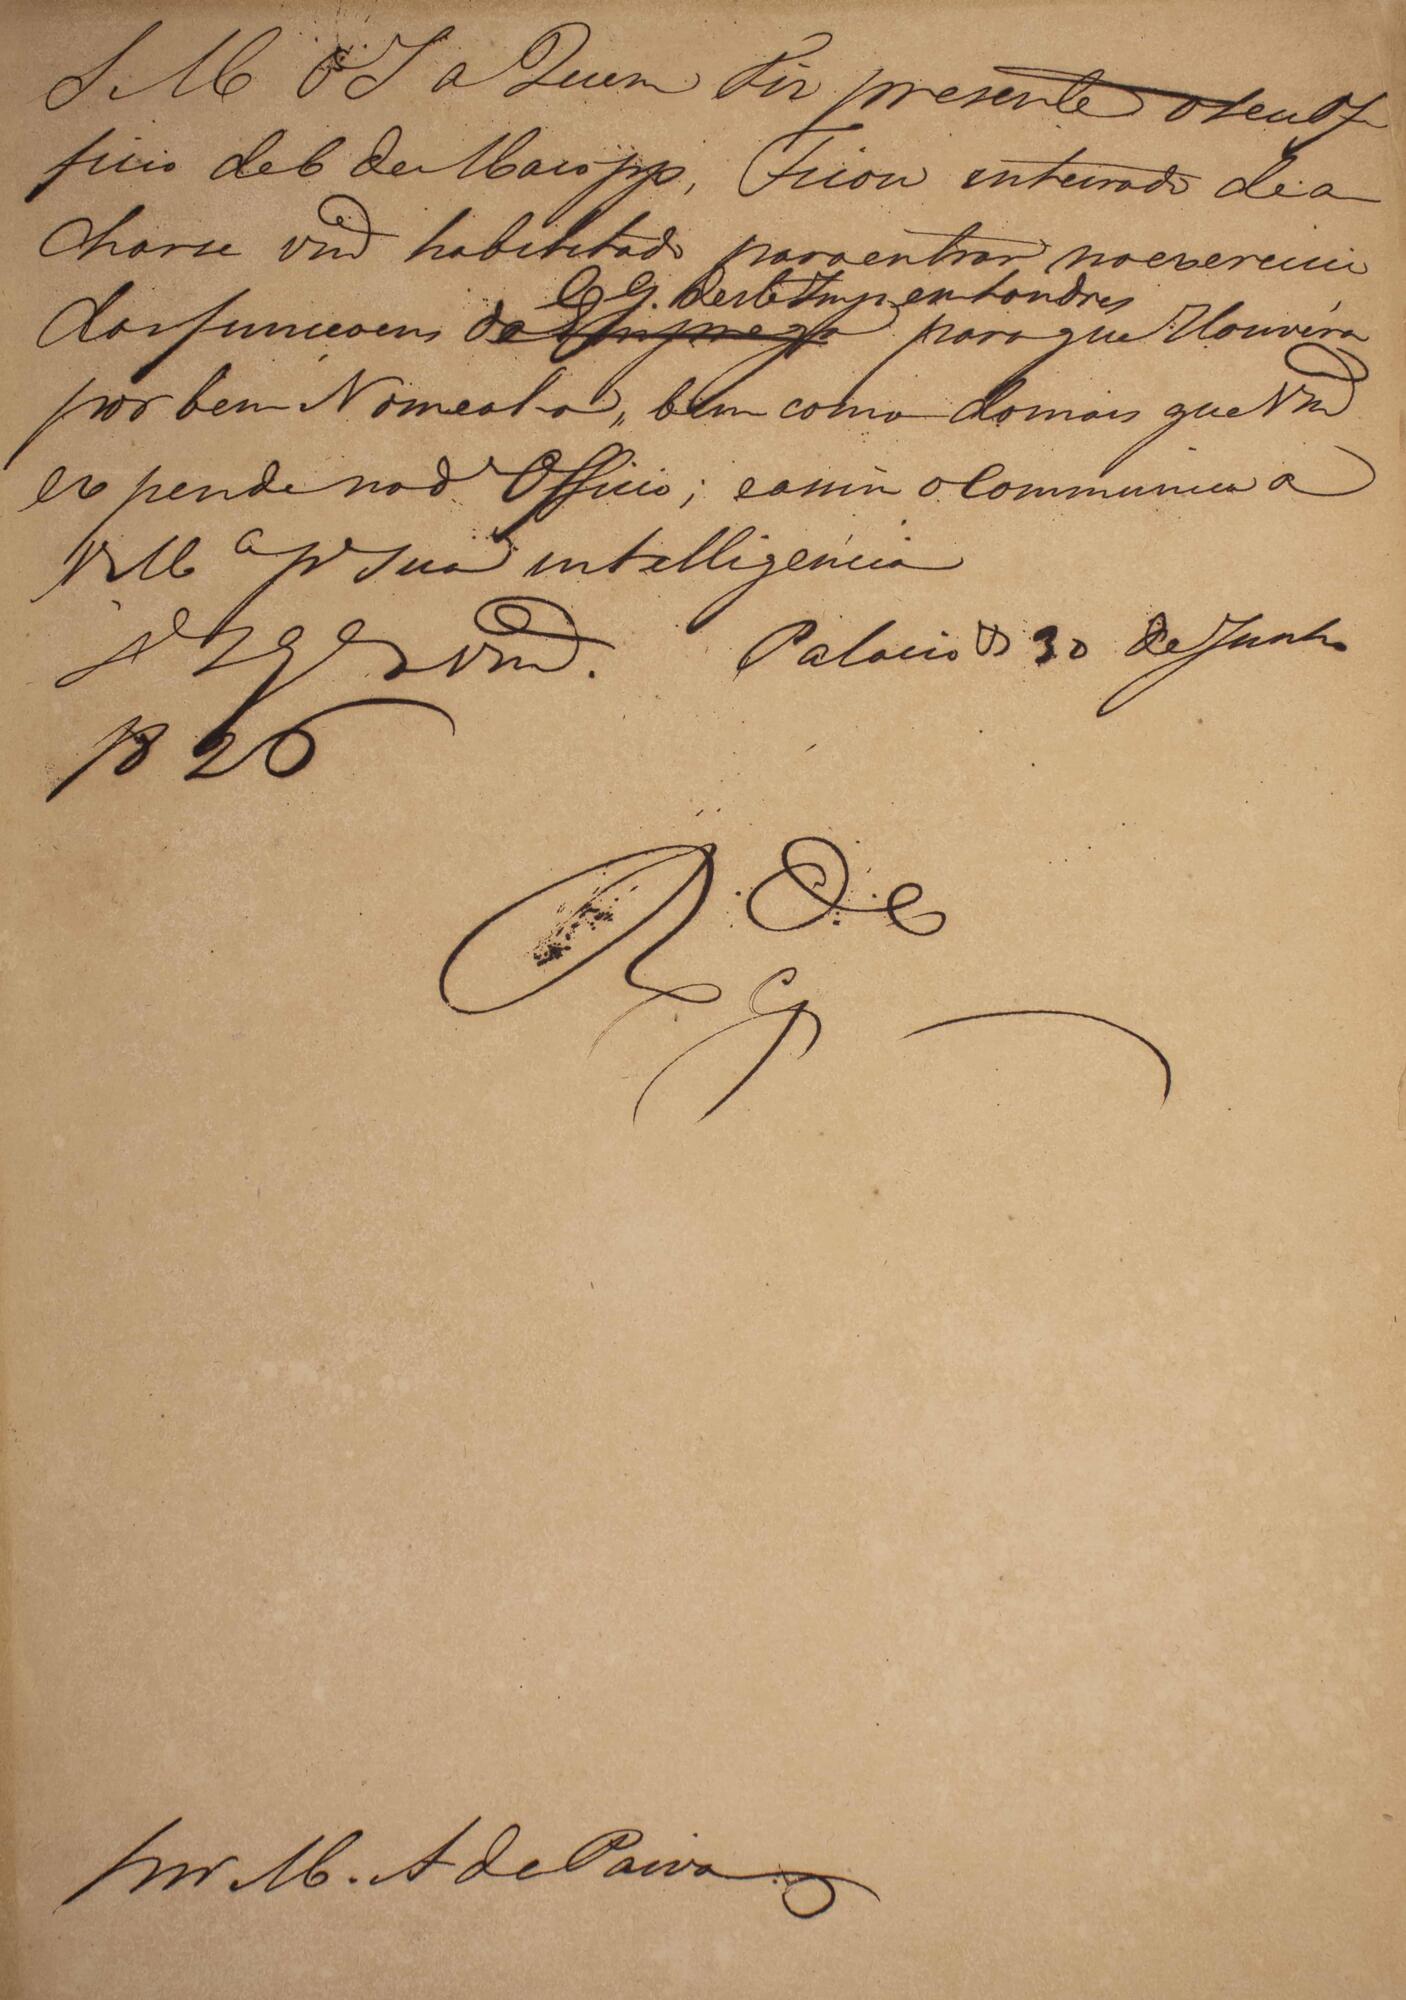 S. M. O I a Quem Fiz presente o seu Of
ficio de 6 de Março pp, Ficou inteirado de a
charse vmd habilitado para entrar no exercicio
C G. deste Imp em Londres
das funcçoens do Emprego para que Houvéra
por bem Nomeal-o, bem como do mais que Vmd
expende no do Officio; e assim o communico a
VM ce pa sua intelligencia
Ds Ge a vmd. Palacio 30 de Junho
1826
por M. A de Paiva